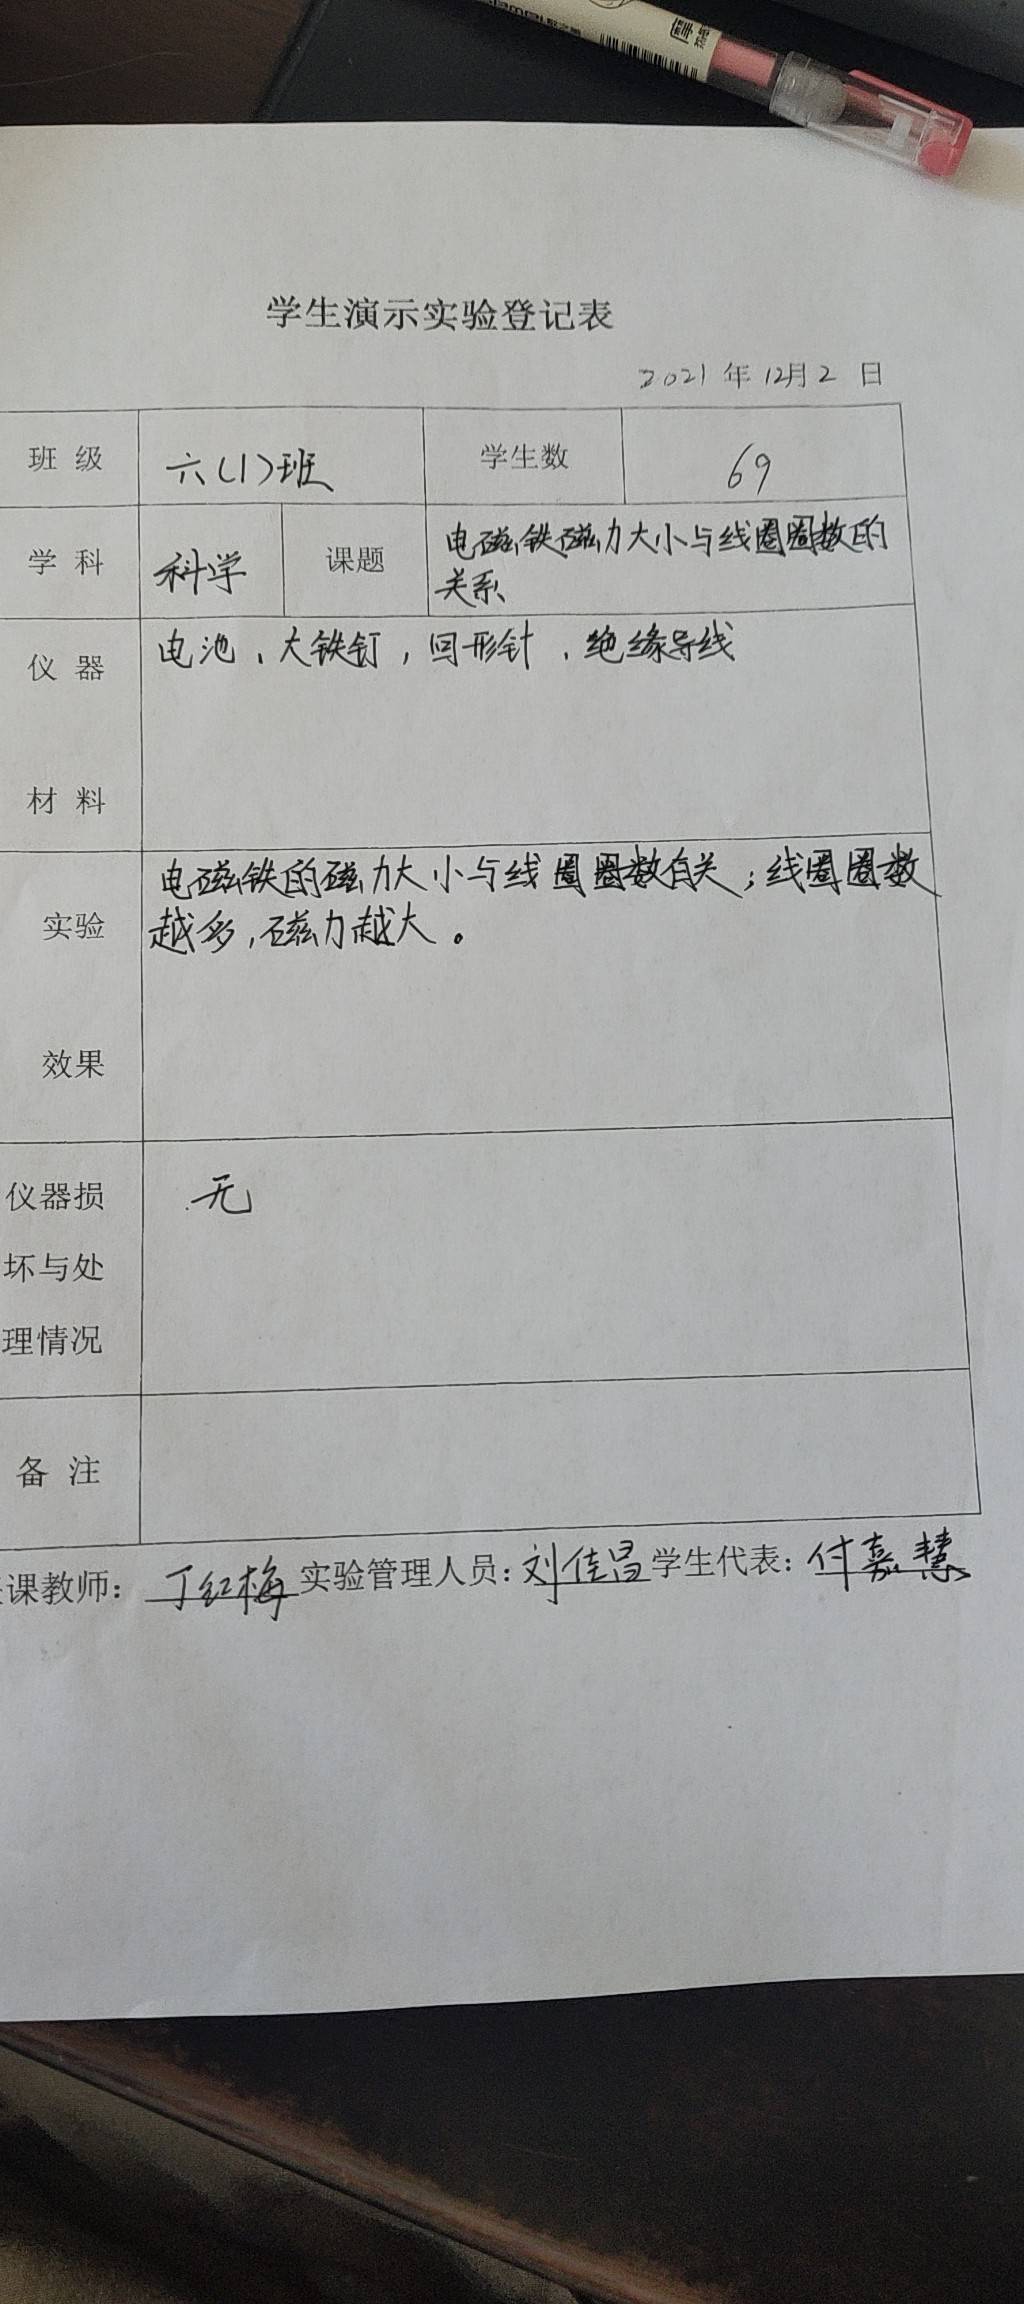 学生演示实验登记表
2021 年 12月 2 日
班 级 六(1)班 学生数 69
学 科 科学 课题 电磁铁磁力大小与线圈圈数的
关系
仪 器 电池、大铁钉，回形针、绝缘导线
材 料
电磁铁的磁力大小与线圈圈数有关；线圈圈数
实验 越多，磁力越大。
效果
仪器损 无
坏与处
理情况
备 注
课教师： 丁红梅 实验管理人员：刘佳昌 学生代表：付嘉慧